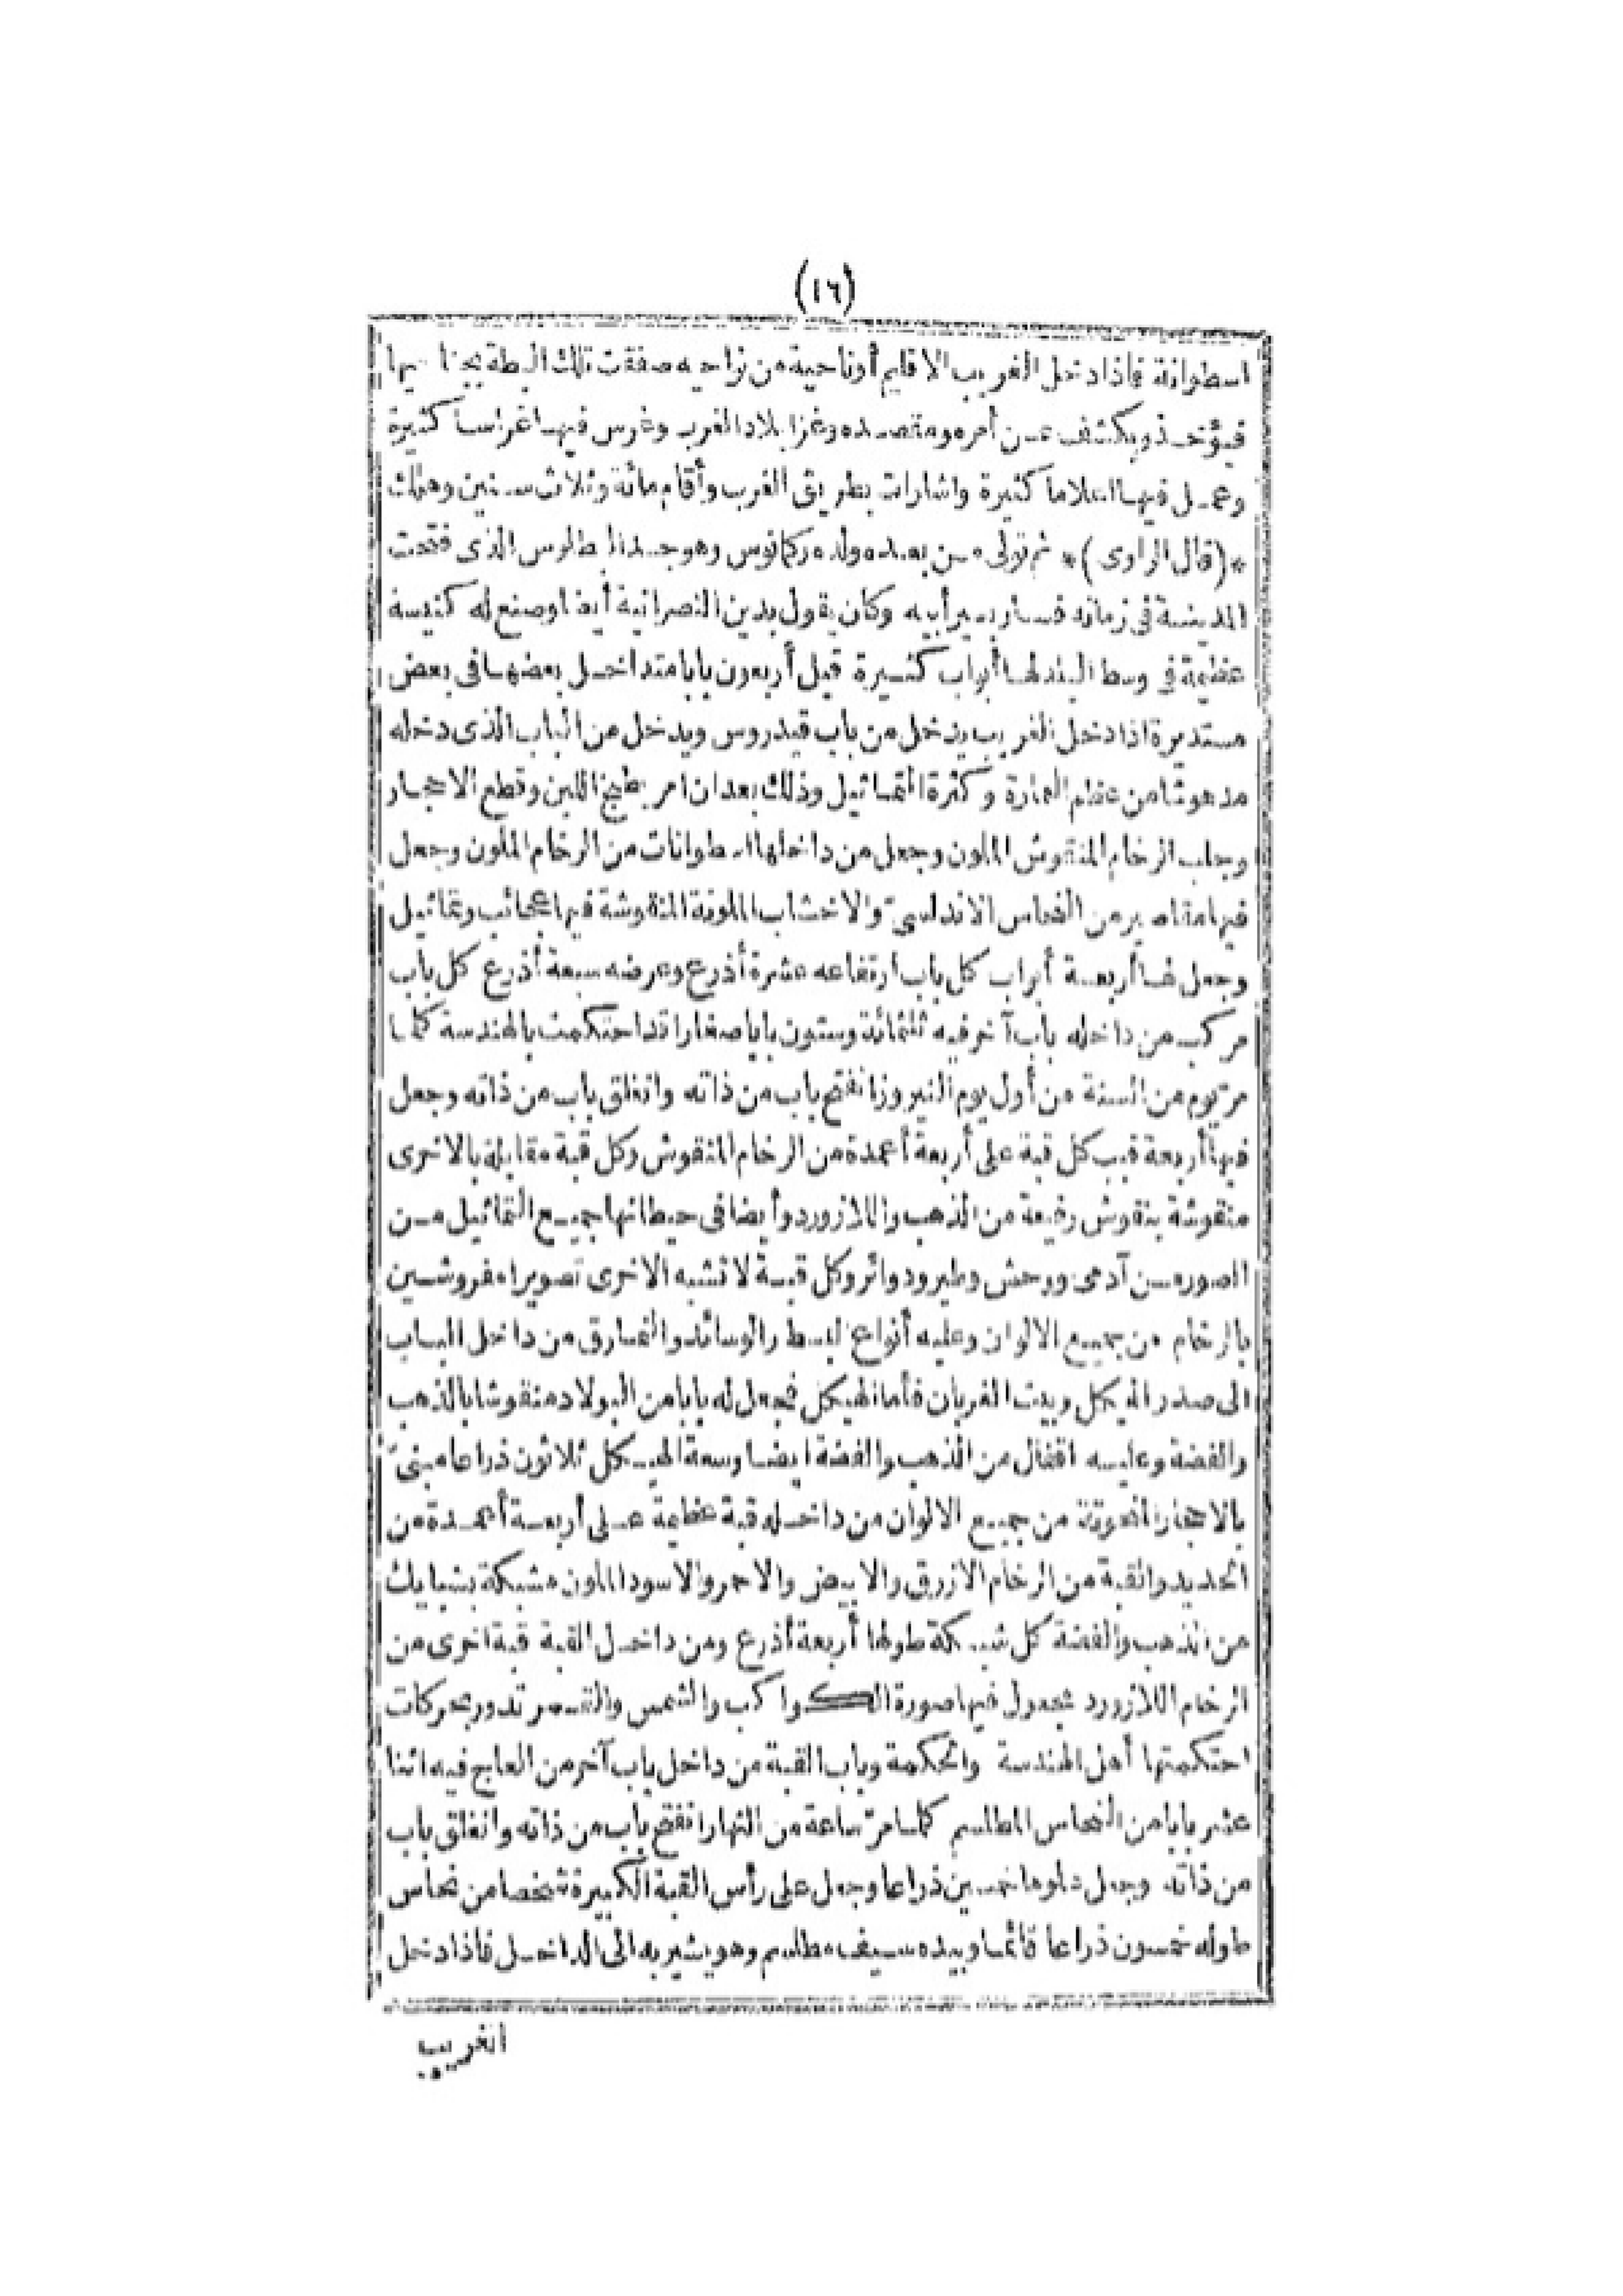 (١٦)
اسطوانة فاذا دخل الغريب الاقليم أوناحية من نواحيه صفقت تلك البطة بجناحيها
فيؤخذ ويكشف عن أمره ومقصده وغزا بلاد الغرب وغرس فيها غراسا كثيرة
وعمل فيها اعلاما كثيرة واشارات بطريق الغرب وأقام مائة وثلاث سنين وهلك
*(قال الراوى)* ثم تولى من بعده ولده ركانوس وهو جد البطلوس الذى فتحت
المدينة فى زمانه فسار بسير أبيه وكان يقول بدين النصرانية أيضا وصنع له كنيسة
عظيمة فى وسط البلد لها أبواب كثيرة قيل أربعون بابا متداخل بعضها فى بعض
مستديرة اذا دخل الغريب يدخل من باب قيدروس ويدخل من الباب الذى دخله
مدهوشا من عظم العمارة وكثرة التماثيل وذلك بعد ان امر بطبخ اللبن وقطع الاحجار
وجلب الرخام المنقوش الملون وجعل من داخلها اسطوانات من الرخام الملون وجعل
فيها مقاصير من النحاس الاندلسىّ والاخشاب الملونة المنقوشة فيها عجائب وتماثيل
وجعل لها أربعة أبواب كل باب ارتفاعه عشرة أذرع وعرضه سبعة أذرع كل باب
مركب من داخله باب آخر فيه ثلثمائة وستون بابا صغارا قد احتكمت بالهندسة كلما
مرّ يوم من السنة من أول يوم النيروز انفتح باب من ذاته وانغلق باب من ذاته وجعل
فيها أربعة قبب كل قبة على أربعة أعمدة من الرخام المنقوش وكل قبة مقابلة بالاخرى
منقوشة بنقوش رفيعة من الذهب واللازورد وأيضا فى حيطانها جميع التماثيل من
الصور من آدمى ووحش وطير ودوائر وكل قبة لا تشبه الاخرى تصويرا مفروشين
بالرخام من جميع الالوان وعليه أنواع البسط والوسائد والنمارق من داخل الباب
الى صدر الهيكل وبيت القربان فأما الهيكل فجعل له بابا من البولاد منقوشا بالذهب
والفضة وعليه اقفال من الذهب والفضة ايضا وسعة الهيكل ثلاثون ذراعا مبنىّ
بالاحجار الملونة من جميع الالوان من داخله قبة عظيمة على أربعة أعمدة من
الحديد والقبة من الرخام الازرق والابيض والاحمر والاسود الملون مشبكة بشبابيك
من الذهب والفضة كل شبكة طولها أربعة أذرع ومن داخل القبة قبة اخرى من
الرخام اللازورد مجعول فيها صورة الكواكب والشمس والقمر تدور بحركات
احتكمتها أهل الهندسة والحكمة وباب القبة من داخل باب آخر من العاج فيه اثنا
عشر بابا من النحاس المطلسم كلما مرّ ساعة من النهار انفتح باب من ذاته وانغلق باب
من ذاته وجعل طولها خمسين ذراعا وجعل على رأس القبة الكبيرة شخصا من نحاس
طوله خمسون ذراعا قائما وبيده سيف مطلسم وهو يشير به الى الداخل فاذا دخل
الغريب